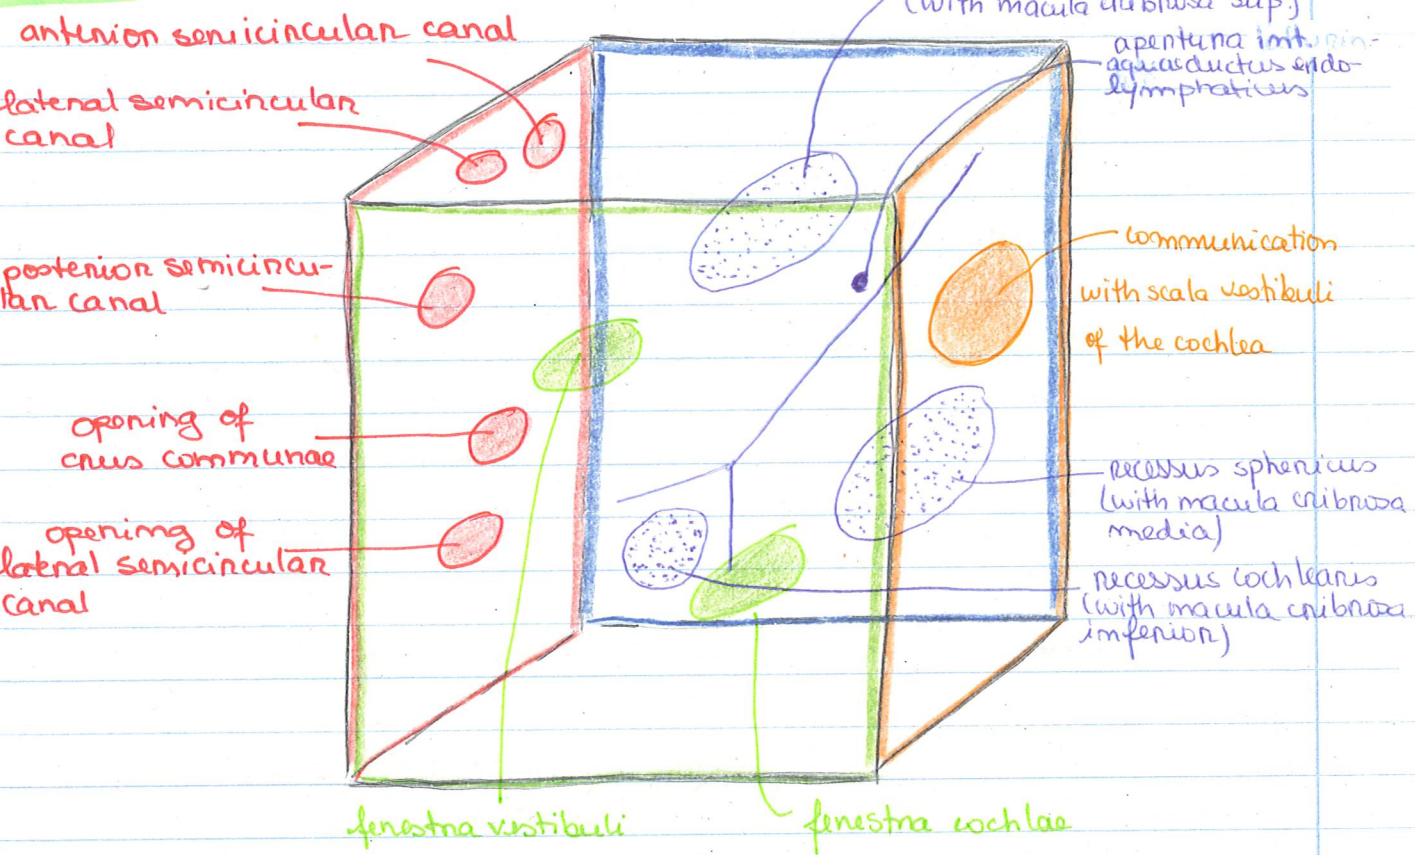 (with macula cribrosa sup.)
anterior semicircular canal
lateral semicircular
canal
posterior semicircu-
lar canal
opening of
crus communae
opening of
lateral semicircular
canal
apertura int.
aquaeductus endo-
lymphaticus
communication
with scala vestibuli
of the cochlea
recessus sphericus
(with macula cribrosa
media)
recessus cochlearis
(with macula cribrosa
inferior)
fenestra vestibuli
fenestra cochlae